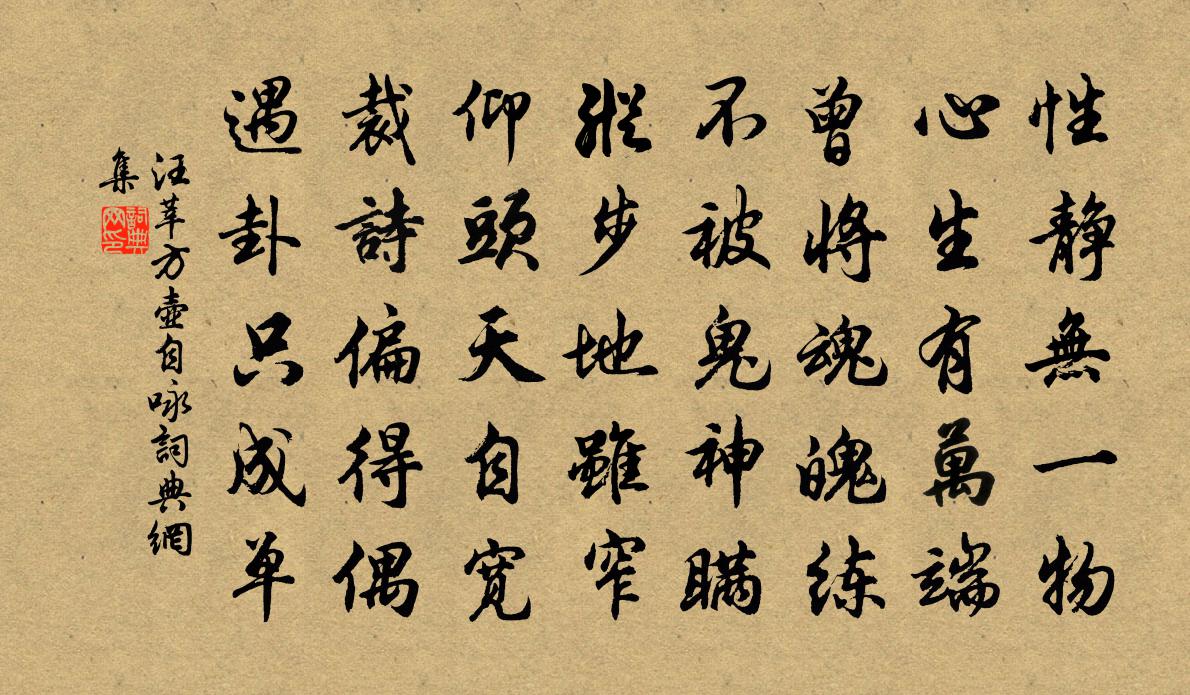 性静無一物
心生有萬端
曾將魂魄练
不被鬼神瞞
縱步地雖窄
仰頭天自寬
裁詩偏得偶
遇卦只成单
汪莘方壺自咏詞典網
集
詞典網印